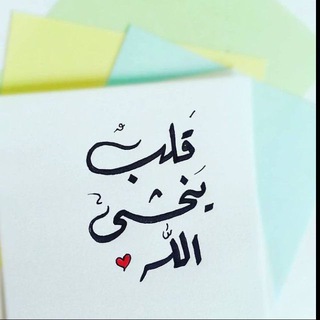 قَلبٌ
يَخشى
اللّه